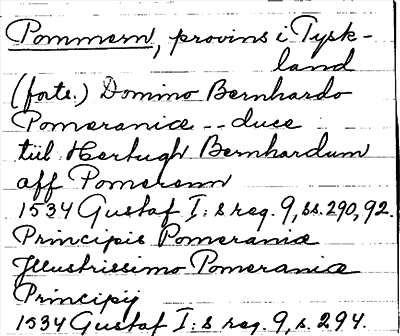 Pommern, provins i Tysk-
land
(forts.) Domino Bernhardo
Pomeraniæ -- duce
tiil Hertugh Bernhardum
aff Pomerenn
1534 Gustaf I:s reg. 9, ss. 290, 92.
Principis Pomeraniæ
Jllustrissimo Pomeraniæ
Principij
1534 Gustaf I:s reg. 9, s. 294.